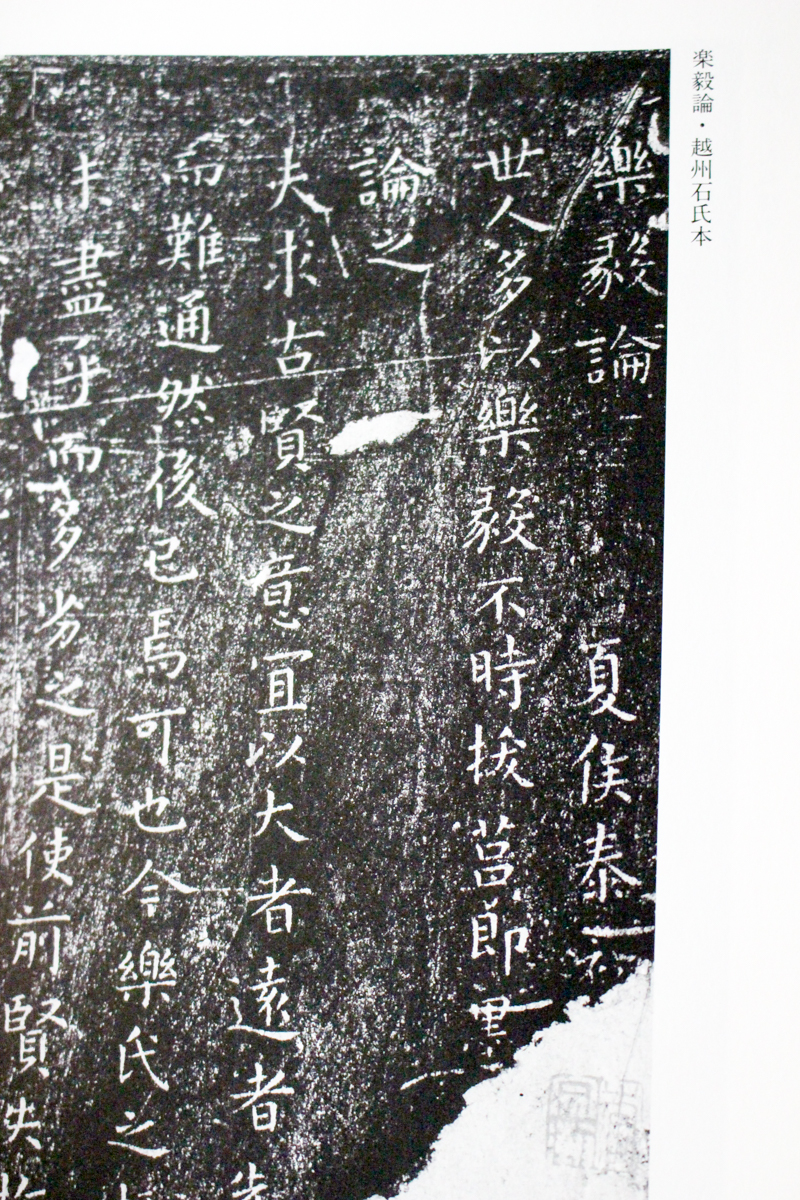 楽毅論・越州石氏本
樂毅論 夏侯泰
世人多以樂毅不時拔莒即墨
論之
夫求古賢之意宜以大者遠者先
而難通然後已焉可也今樂氏之
未盡乎而多劣之是使前賢失